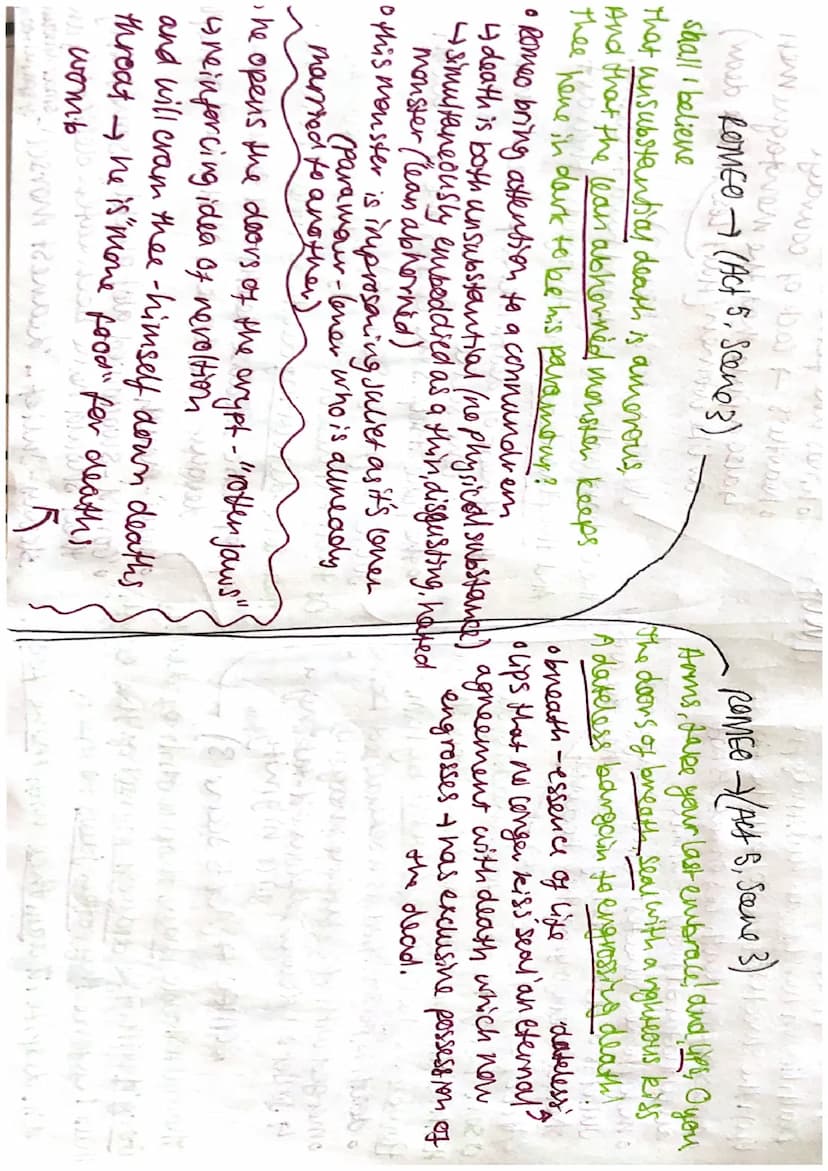 ROMEO → (Act 5, Scene 3)
shall i believe
that unsubstantial death is amorous,
And that the lean abhorred monster keeps
thee here in dark to be his paramour?
• Romeo bring attention to a conundrem
↳ death is both unsubstantial (no physical substance)
↳ simultaneously emboddied as a thin, disgusting, hated
monster ("lean abhorred)
• this monster is imprisoning Juliet as it's lover
(paramour - lover who is already
married to another)
• he opens the doors of the crypt - "rotten jaws"
↳ reinforcing idea of revoltion
and will cram thee - himself down deaths
throat → he is "more food" for deaths
womb
ROMEO → (Act 5, Scene 3)
Arms, take your last embrace! and lips, O you
the doors of breath, seal with a righteous kiss
A dateless bargain to engrossing death!
• breath - essence of life
'dateless'
• lips that no longer kiss 'seal' an eternal
agreement with death, which now
engrosses → has exclusive possession of
the dead.